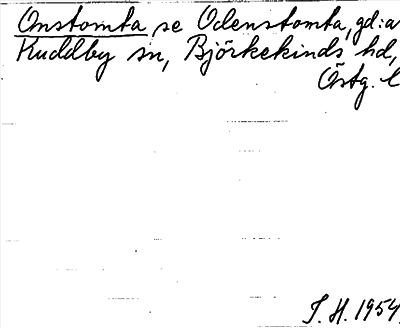 Onstomta se Odenstomta, gd:a
Kuddby sn, Björkekinds hd,
Östg. l
J. H. 1954.